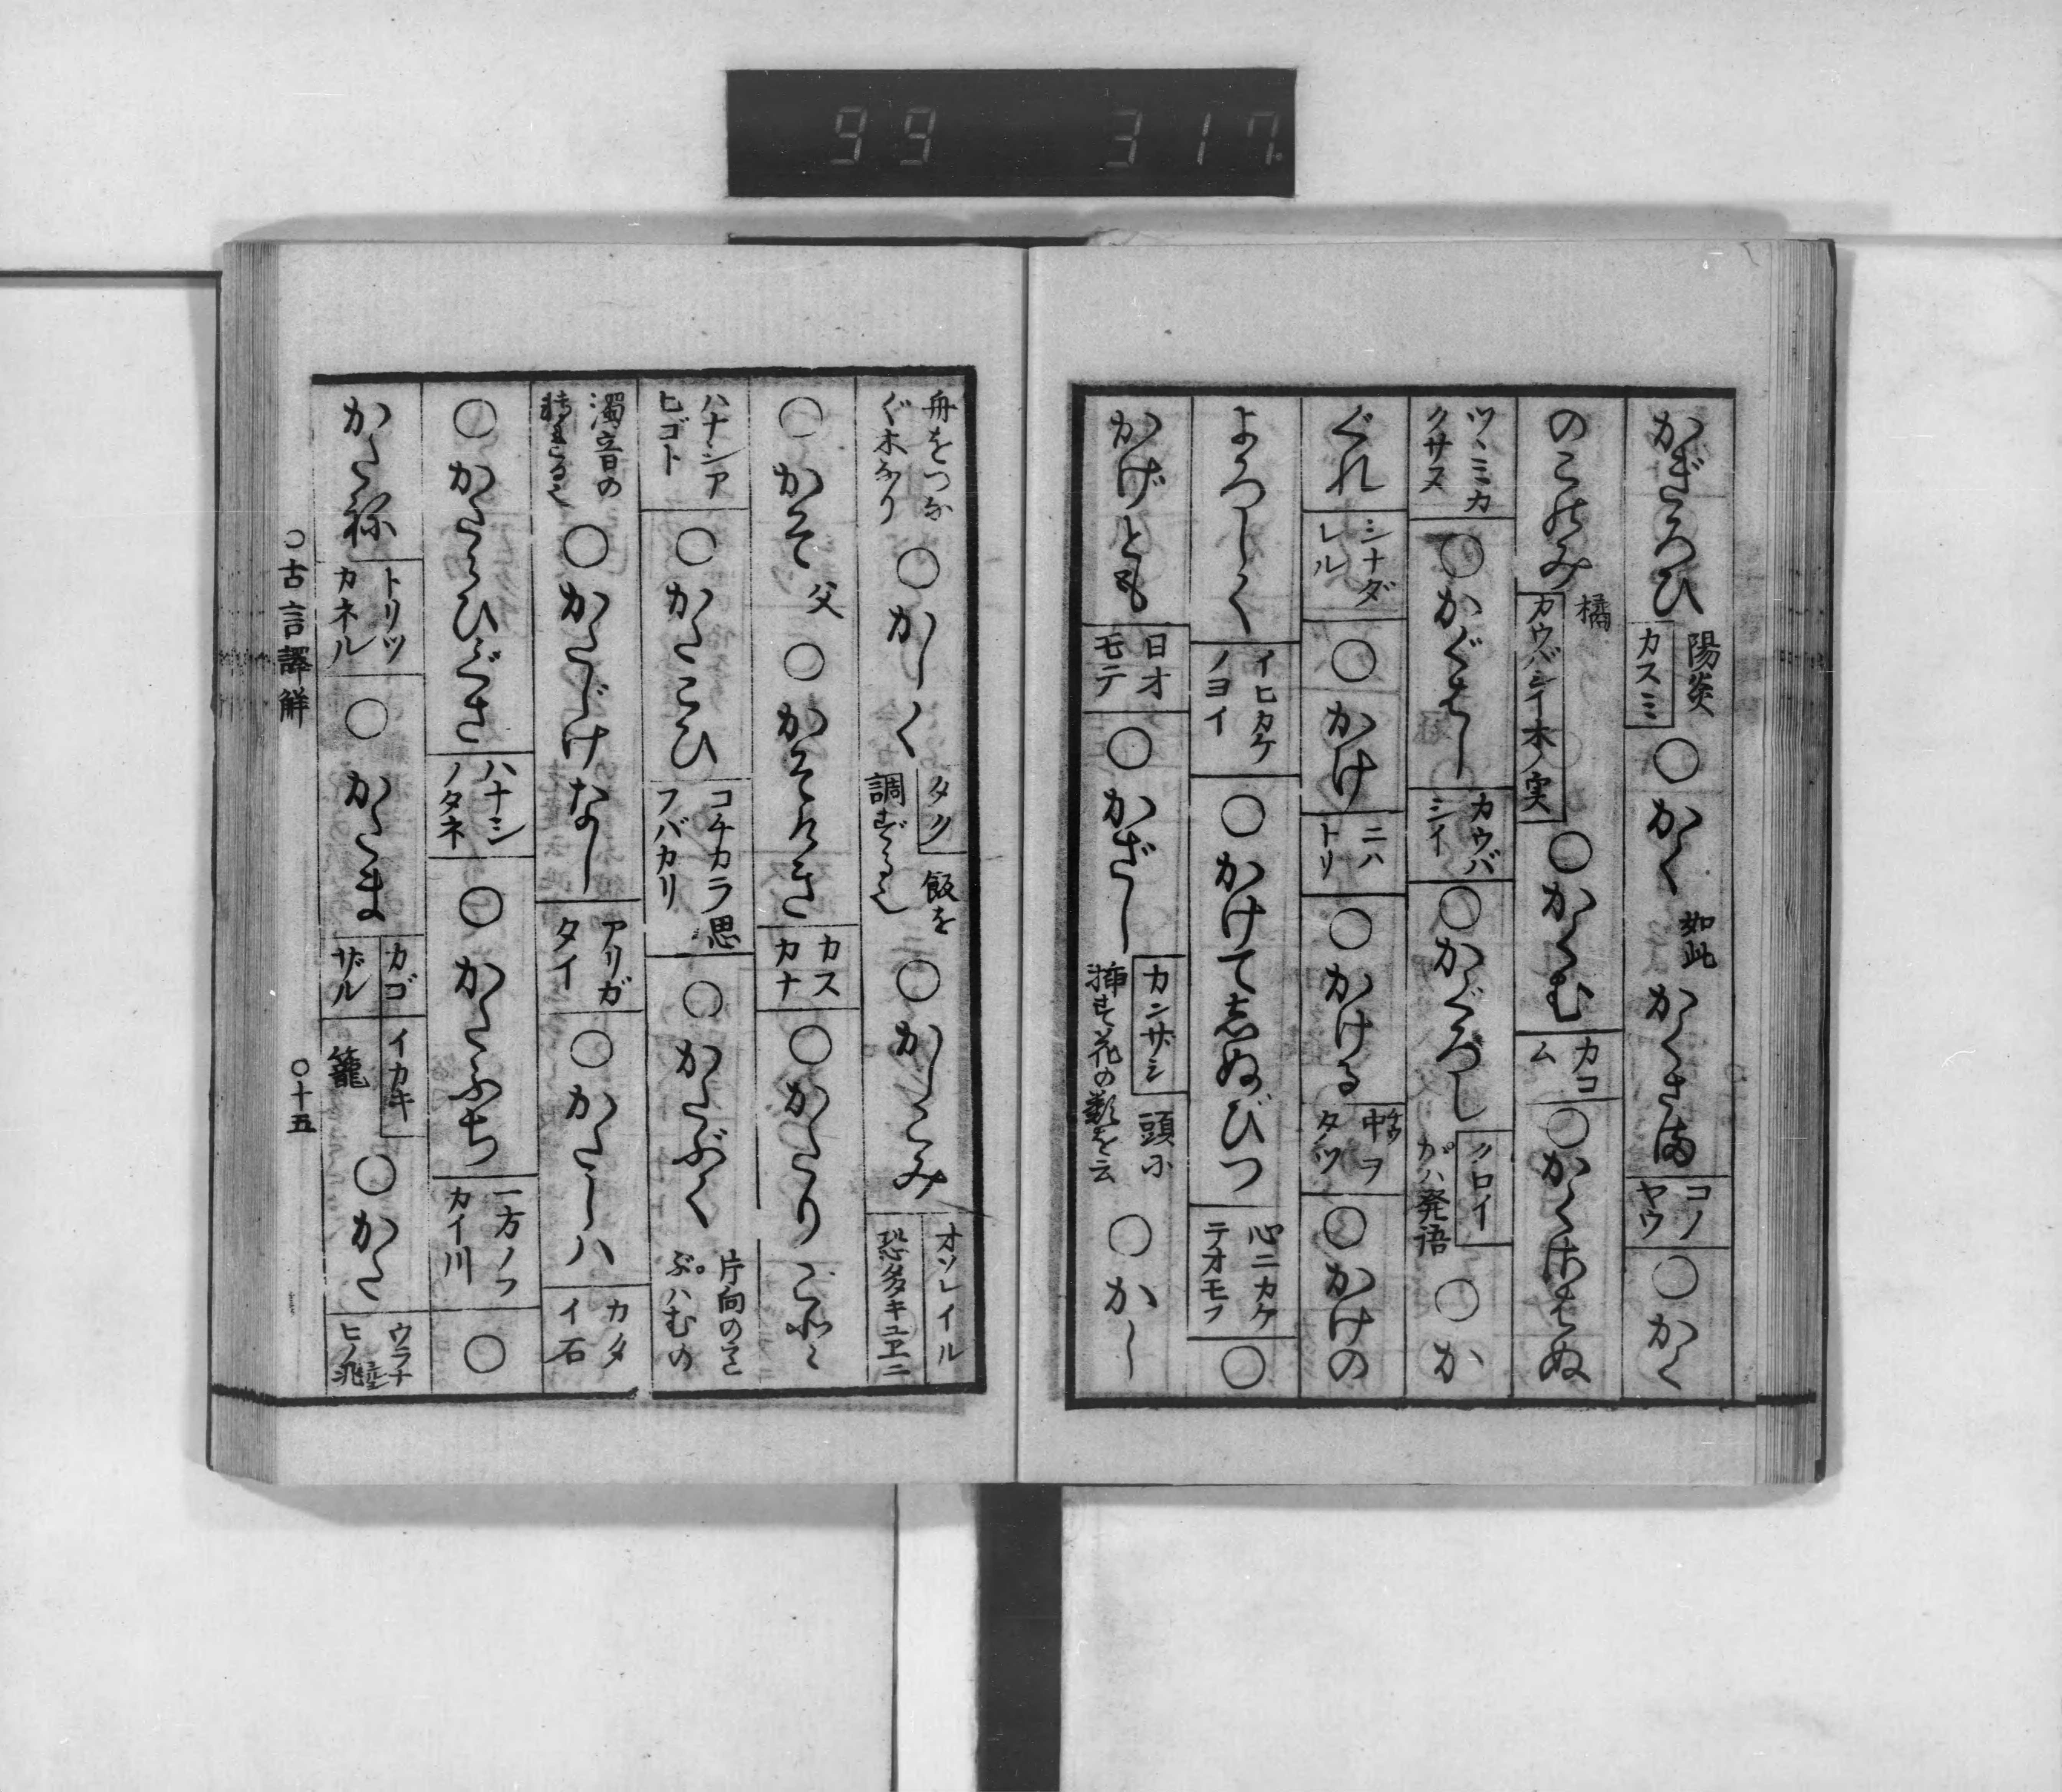 99 317
かぎろひ 陽炎 カスミ ○かく 如此 かくさま コノヤウ ○かく
のこのみ 橘 カウバシイ木ノ実 ○かくむ カコム ○かくはしぬ
ツヽミカクサヌ ○かぐはし カウバシイ ○かぐろし クロイ かハ発語 ○か
ぐれ シナダレル ○かけ ニハトリ ○かける 中ヲタツ ○かけの
よろしく イヒカケノヨイ ○かけてしぬびつ 心ニカケテオモフ ○
かげとも 日オモテ ○かざし カンザシ 頭に挿す花の類を云 ○かし
舟をつなぐ木なり ○かしく タク 飯を調ずる也 ○かしこみ オソレイル 恐多キユヱニ
○かそ 父 ○かそけき カスカナ ○かたりごと
ハナシアヒゴト ○かたこひ コチカラ思フバカリ ○かたぶく 片向のぶハむの
濁音の転れる也 ○かたじけなし アリガタイ ○かたしハ カタイ石
○かたらひぐさ ハナシノタネ ○かたふち 一方ノフカイ川 ○
かたね トリツカネル ○かたま カゴ ザル イカキ 籠 ○かた ウラナヒノ兆
○古言譯解 ○十五